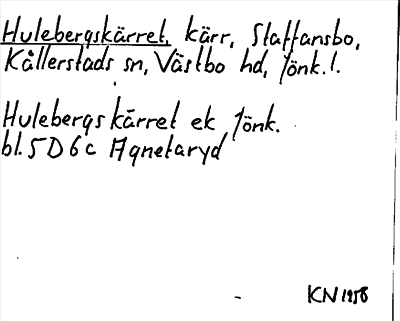 Hulebergskärret, kärr, Staffansbo,
Kållerstads sn, Västbo hd, Jönk. l.
Hulebergskärret ek Jönk.
bl. 5D6c Agnetaryd
KN 1958